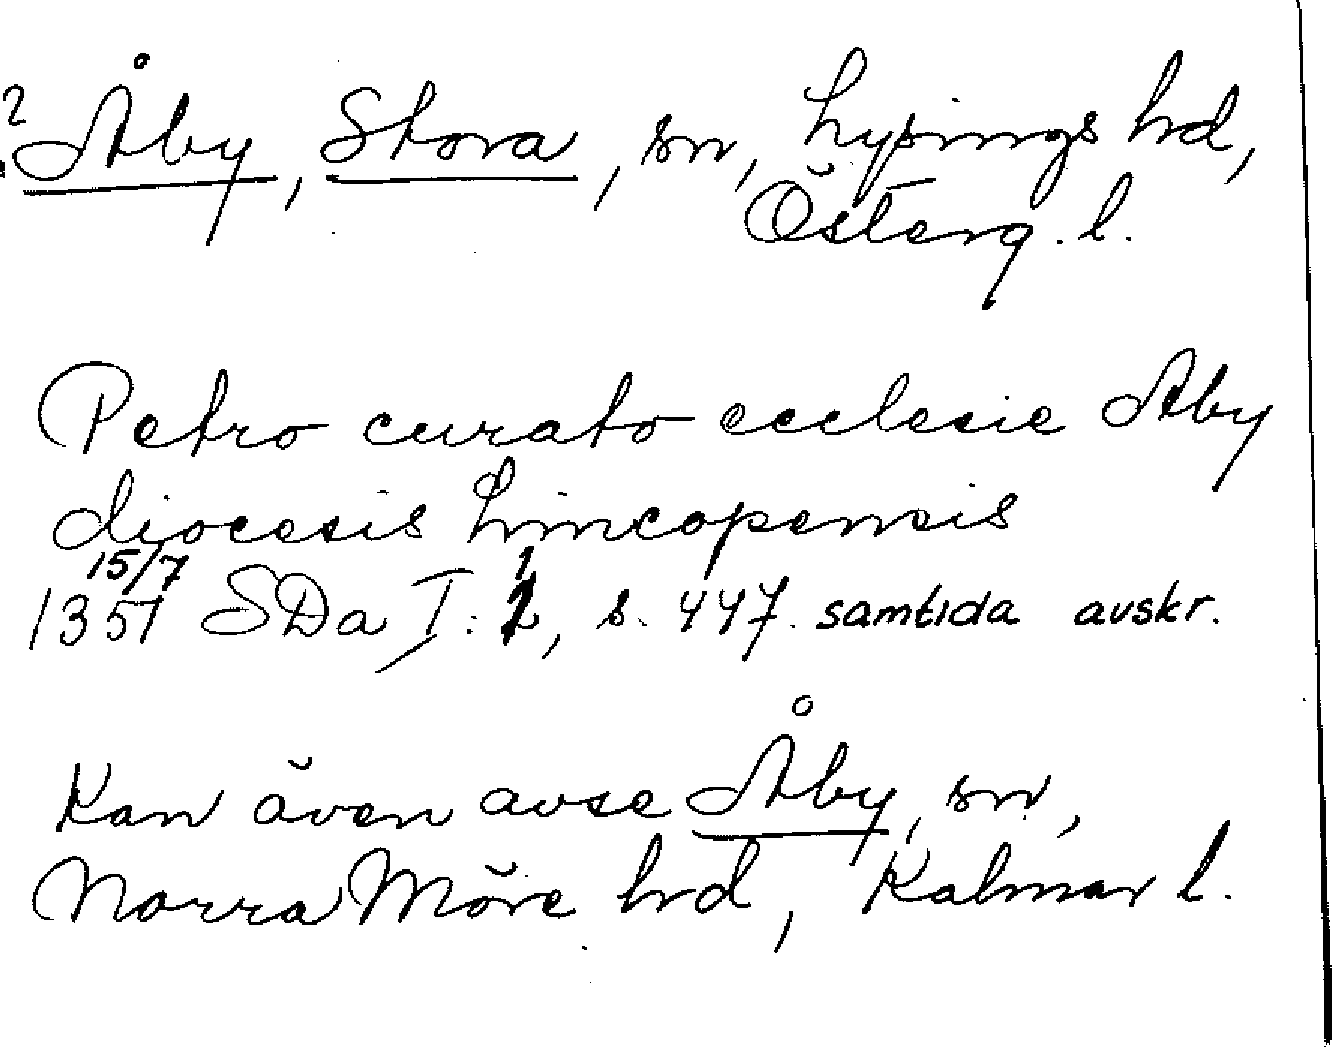 ? Åby, Stora, sn, Lysings hd,
Österg. l.
Petro curato ecclesie Aby
diocesis Lincopensis
15/7
1351 SDa I: 1, s. 447. samtida avskr.
Kan även avse Åby, sn,
Norra Möre hd, Kalmar l.